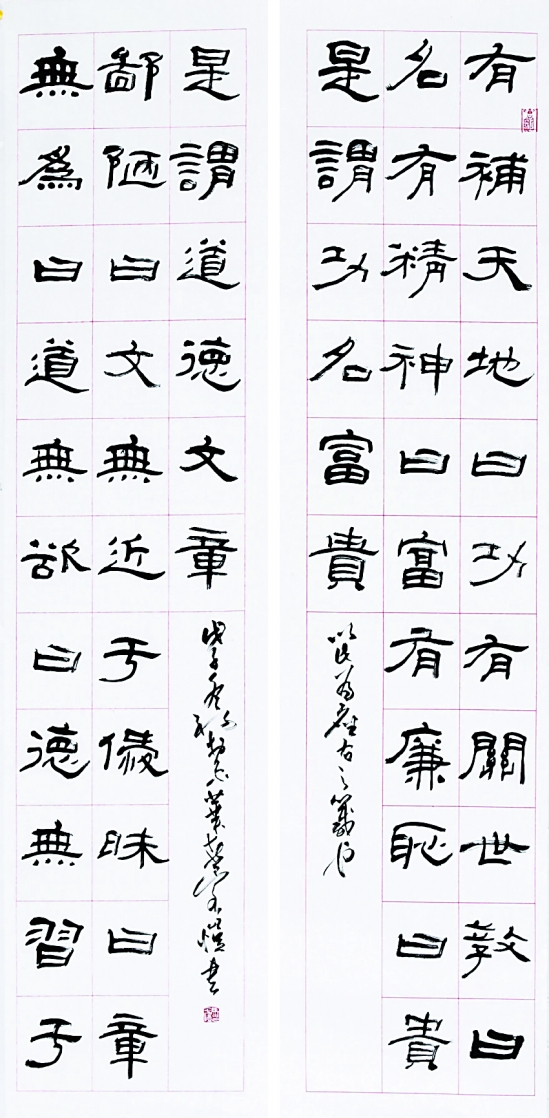 有補天地曰功有關世教曰
名有精神曰富有廉恥曰貴
是謂功名富貴
無為曰道無欲曰德無習于
鄙陋曰文無近于僾昧曰章
是謂道德文章
以此為座右之箴
戊子冬